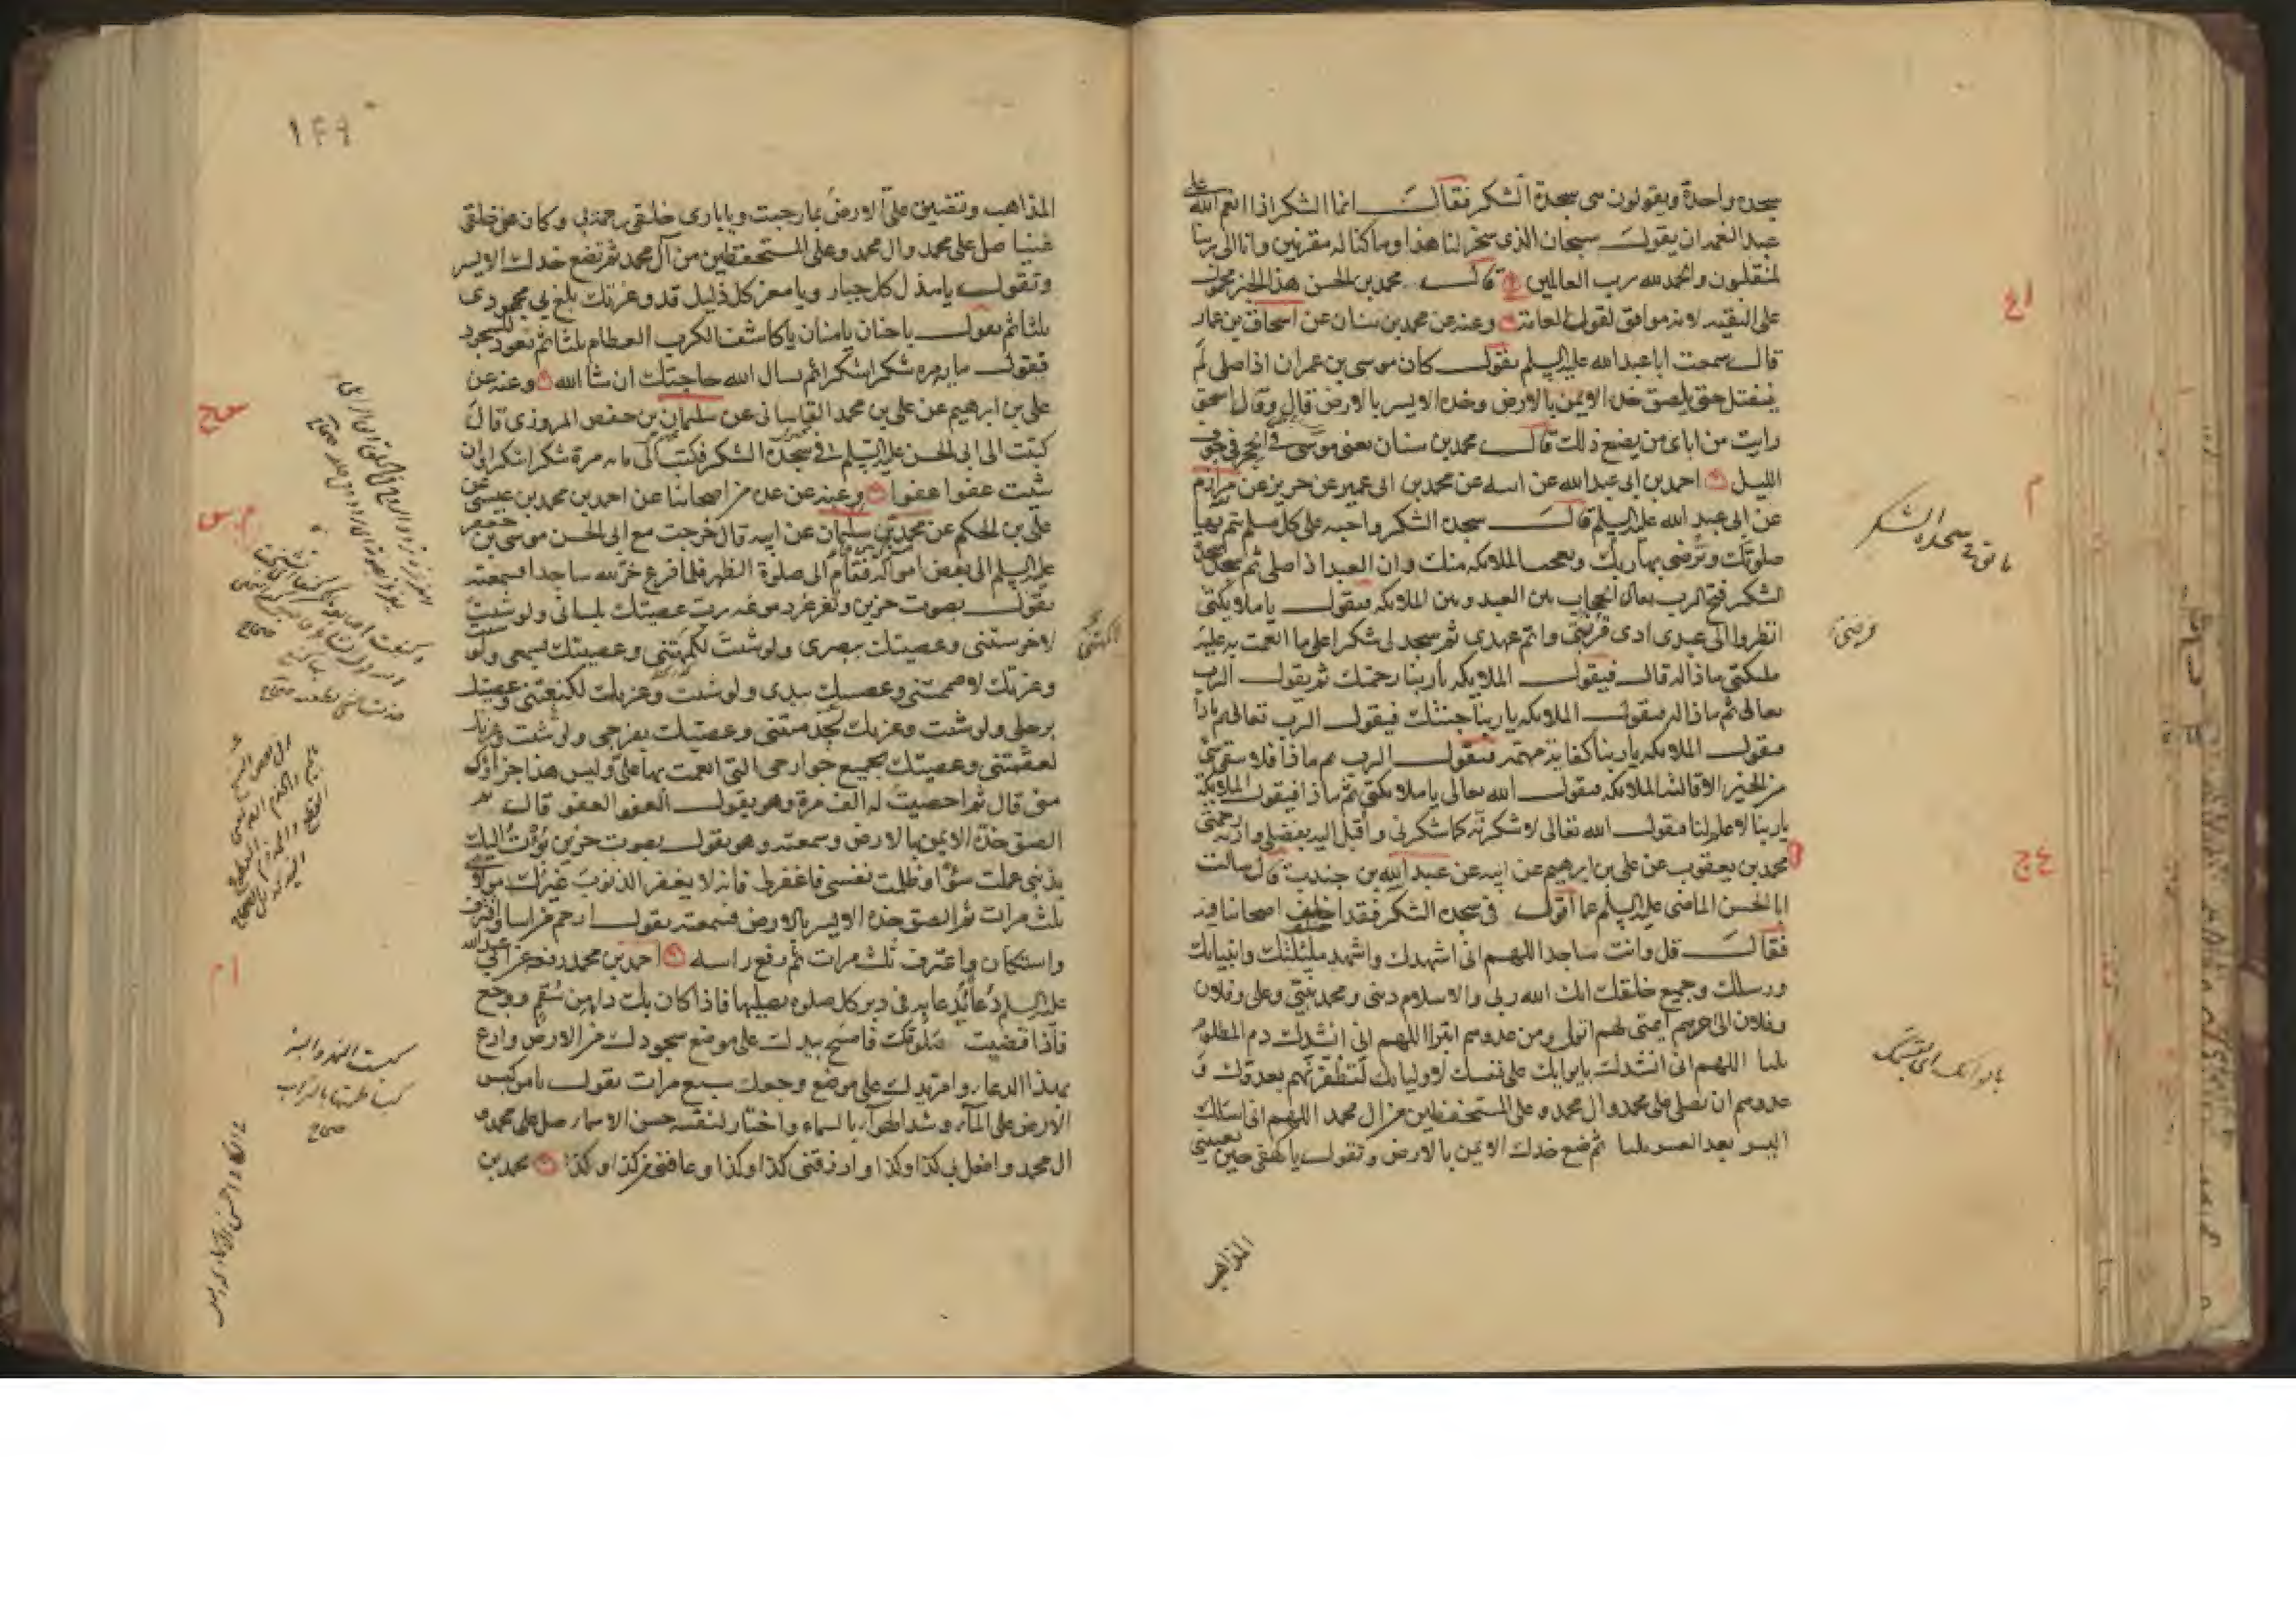 سجده واحدة ويقولون هى سجدة الشكر فقال انما الشكر اذا انعم الله على
عبد النعمة ان يقول سبحان الذى سخر لنا هذا وما كنا له مقرنين وانا الى ربنا
لمنقلبون والحمد لله رب العالمين قال محمد بن الحسن هذا الخبر محمول
على التقيه لانه موافق لقول العامة وعنه عن محمد بن سنان عن اسحاق بن عمار
قال سمعت ابا عبد الله عليه السلم يقول كان موسى بن عمران اذا صلى لم
ينفتل حتى يلصق خده الايمن بالارض وخده الايسر بالارض قال وقال اسحق
رايت من اباى من يصنع ذلك قال محمد بن سنان يعنى موسى فى الحجر فى جوف
الليل احمد بن ابى عبد الله عن ابيه عن محمد بن ابى عمير عن حريز عن مرازم
عن ابى عبد الله عليه السلم قال سجدة الشكر واجبه على كل مسلم تتم بها
صلوتك وترضى بها ربك وتعجب الملايكه منك وان العبد اذا صلى ثم سجد سجدة
الشكر فتح الرب تعالى الحجاب بين العبد وبين الملايكه فيقول يا ملايكتى
انظروا الى عبدى ادى قربتى واتم عهدى ثم سجد لى شكرا على ما انعمت به عليه
ملئكتى ماذا له قال فيقول الملايكه يا ربنا رحمتك ثم يقول الرب
تعالى ثم ماذا له فيقول الملايكه يا ربنا جنتك فيقول الرب تعالى ثم ماذا
فيقول الملايكه يا ربنا كفاية مهمه فيقول الرب ثم ماذا فلا يبقى شئ
من الخير الا قالته الملايكه فيقول الله تعالى يا ملايكتى ثم ماذا فيقول الملايكة
يا ربنا لا علم لنا فيقول الله تعالى لاشكرنه كما شكرنى واقبل اليه بفضلى واريه رحمتى
محمد بن يعقوب عن على بن ابرهيم عن ابيه عن عبد الله بن جندب قال سالت
ابا الحسن الماضى عليه السلم عما اقول فى سجدة الشكر فقد اختلف اصحابنا فيه
فقال قل وانت ساجد اللهم انى اشهدك واشهد ملئكتك وانبيائك
ورسلك وجميع خلقك انك الله ربى والاسلام دينى ومحمد نبيى وعلى وفلان
وفلان الى اخرهم ايمتى بهم اتولى ومن عدوهم اتبرا اللهم انى انشدك دم المظلوم
ثلثا اللهم انى انشدك بايوائك على نفسك لاوليائك لتظفرنهم بعدوك و
عدوهم ان تصلى على محمد وال محمد وعلى المستحفظين من ال محمد اللهم انى اسئلك
اليسر بعد العسر ثلثا ثم ضع خدك الايمن بالارض وتقول يا كهفى حين تعيينى
المذاهب
١٤٩
المذاهب وتضيق على الارض بما رحبت ويا بارى خلقى رحمة بى وكان عن خلقى
غنيا صل على محمد وال محمد وعلى المستحفظين من آل محمد ثم تضع خدك الايسر
وتقول يا مذل كل جبار ويا معز كل ذليل قد وعزتك بلغ بى مجهودى
ثلثا ثم تقول يا حنان يا منان يا كاشف الكرب العظام ثلثا ثم تعود للسجود
فتقول مايه مره شكرا شكرا ثم تسال الله حاجتك ان شا الله وعنه عن
على بن ابرهيم عن على بن محمد القاسانى عن سليمان بن حفص المروزى قال
كتبت الى ابى الحسن عليه السلم فى سجدة الشكر فكتب الى مايه مرة شكرا شكرا وان
شئت عفوا عفوا وعنه عن عدة من اصحابنا عن احمد بن محمد بن عيسى عن
على بن الحكم عن محمد بن سليمان عن ابيه قال خرجت مع ابى الحسن موسى بن جعفر
عليه السلم الى بعض امواله فقام الى صلوة الظهر فلما فرغ خر لله ساجدا فسمعته
يقول بصوت حزين وتغرغر دموعه رب عصيتك بلسانى ولو شئت
لاخرستنى وعصيتك ببصرى ولو شئت لكمهتنى وعصيتك بسمعى ولو شئت
وعزتك لاصممتنى وعصيتك بيدى ولو شئت وعزتك لكنعتنى وعصيتك
برجلى ولو شئت وعزتك لجذمتنى وعصيتك بفرجى ولو شئت وعزتك
لعقمتنى وعصيتك بجميع جوارحى التى انعمت بها على وليس هذا جزاؤك
منى قال ثم احصيت له الف مرة وهو يقول العفو العفو قال ثم
الصق خده الايمن بالارض وسمعته وهو يقول بصوت حزين بؤت اليك
بذنبى عملت سؤا وظلمت نفسى فاغفر لى فانه لا يغفر الذنوب غيرك مولاى
ثلث مرات ثم الصق خده الايسر بالارض فسمعته يقول ارحم من اسا واقترف
واستكان واعترف ثلث مرات ثم رفع راسه احمد بن محمد رفعه عن ابى عبد الله
عليه السلم دعا يدعا به فى دبر كل صلوه تصليها فاذا كان بك دا من سقم ووجع
فاذا قضيت صلوتك فامسح بيدك على موضع سجودك من الارض وادع
بهذا الدعا وامر يدك على موضع وجعك سبع مرات تقول يا من كبس
الارض على المآء وشد الهوآء بالسماء واختار لنفسه حسن الاسماء صل على محمد و
ال محمد وافعل بى كذا وكذا وارزقنى كذا وكذا وعافنى من كذا وكذا محمد بن
كبست النهر والبئر
كبسا طمتها بالتراب
صحاح